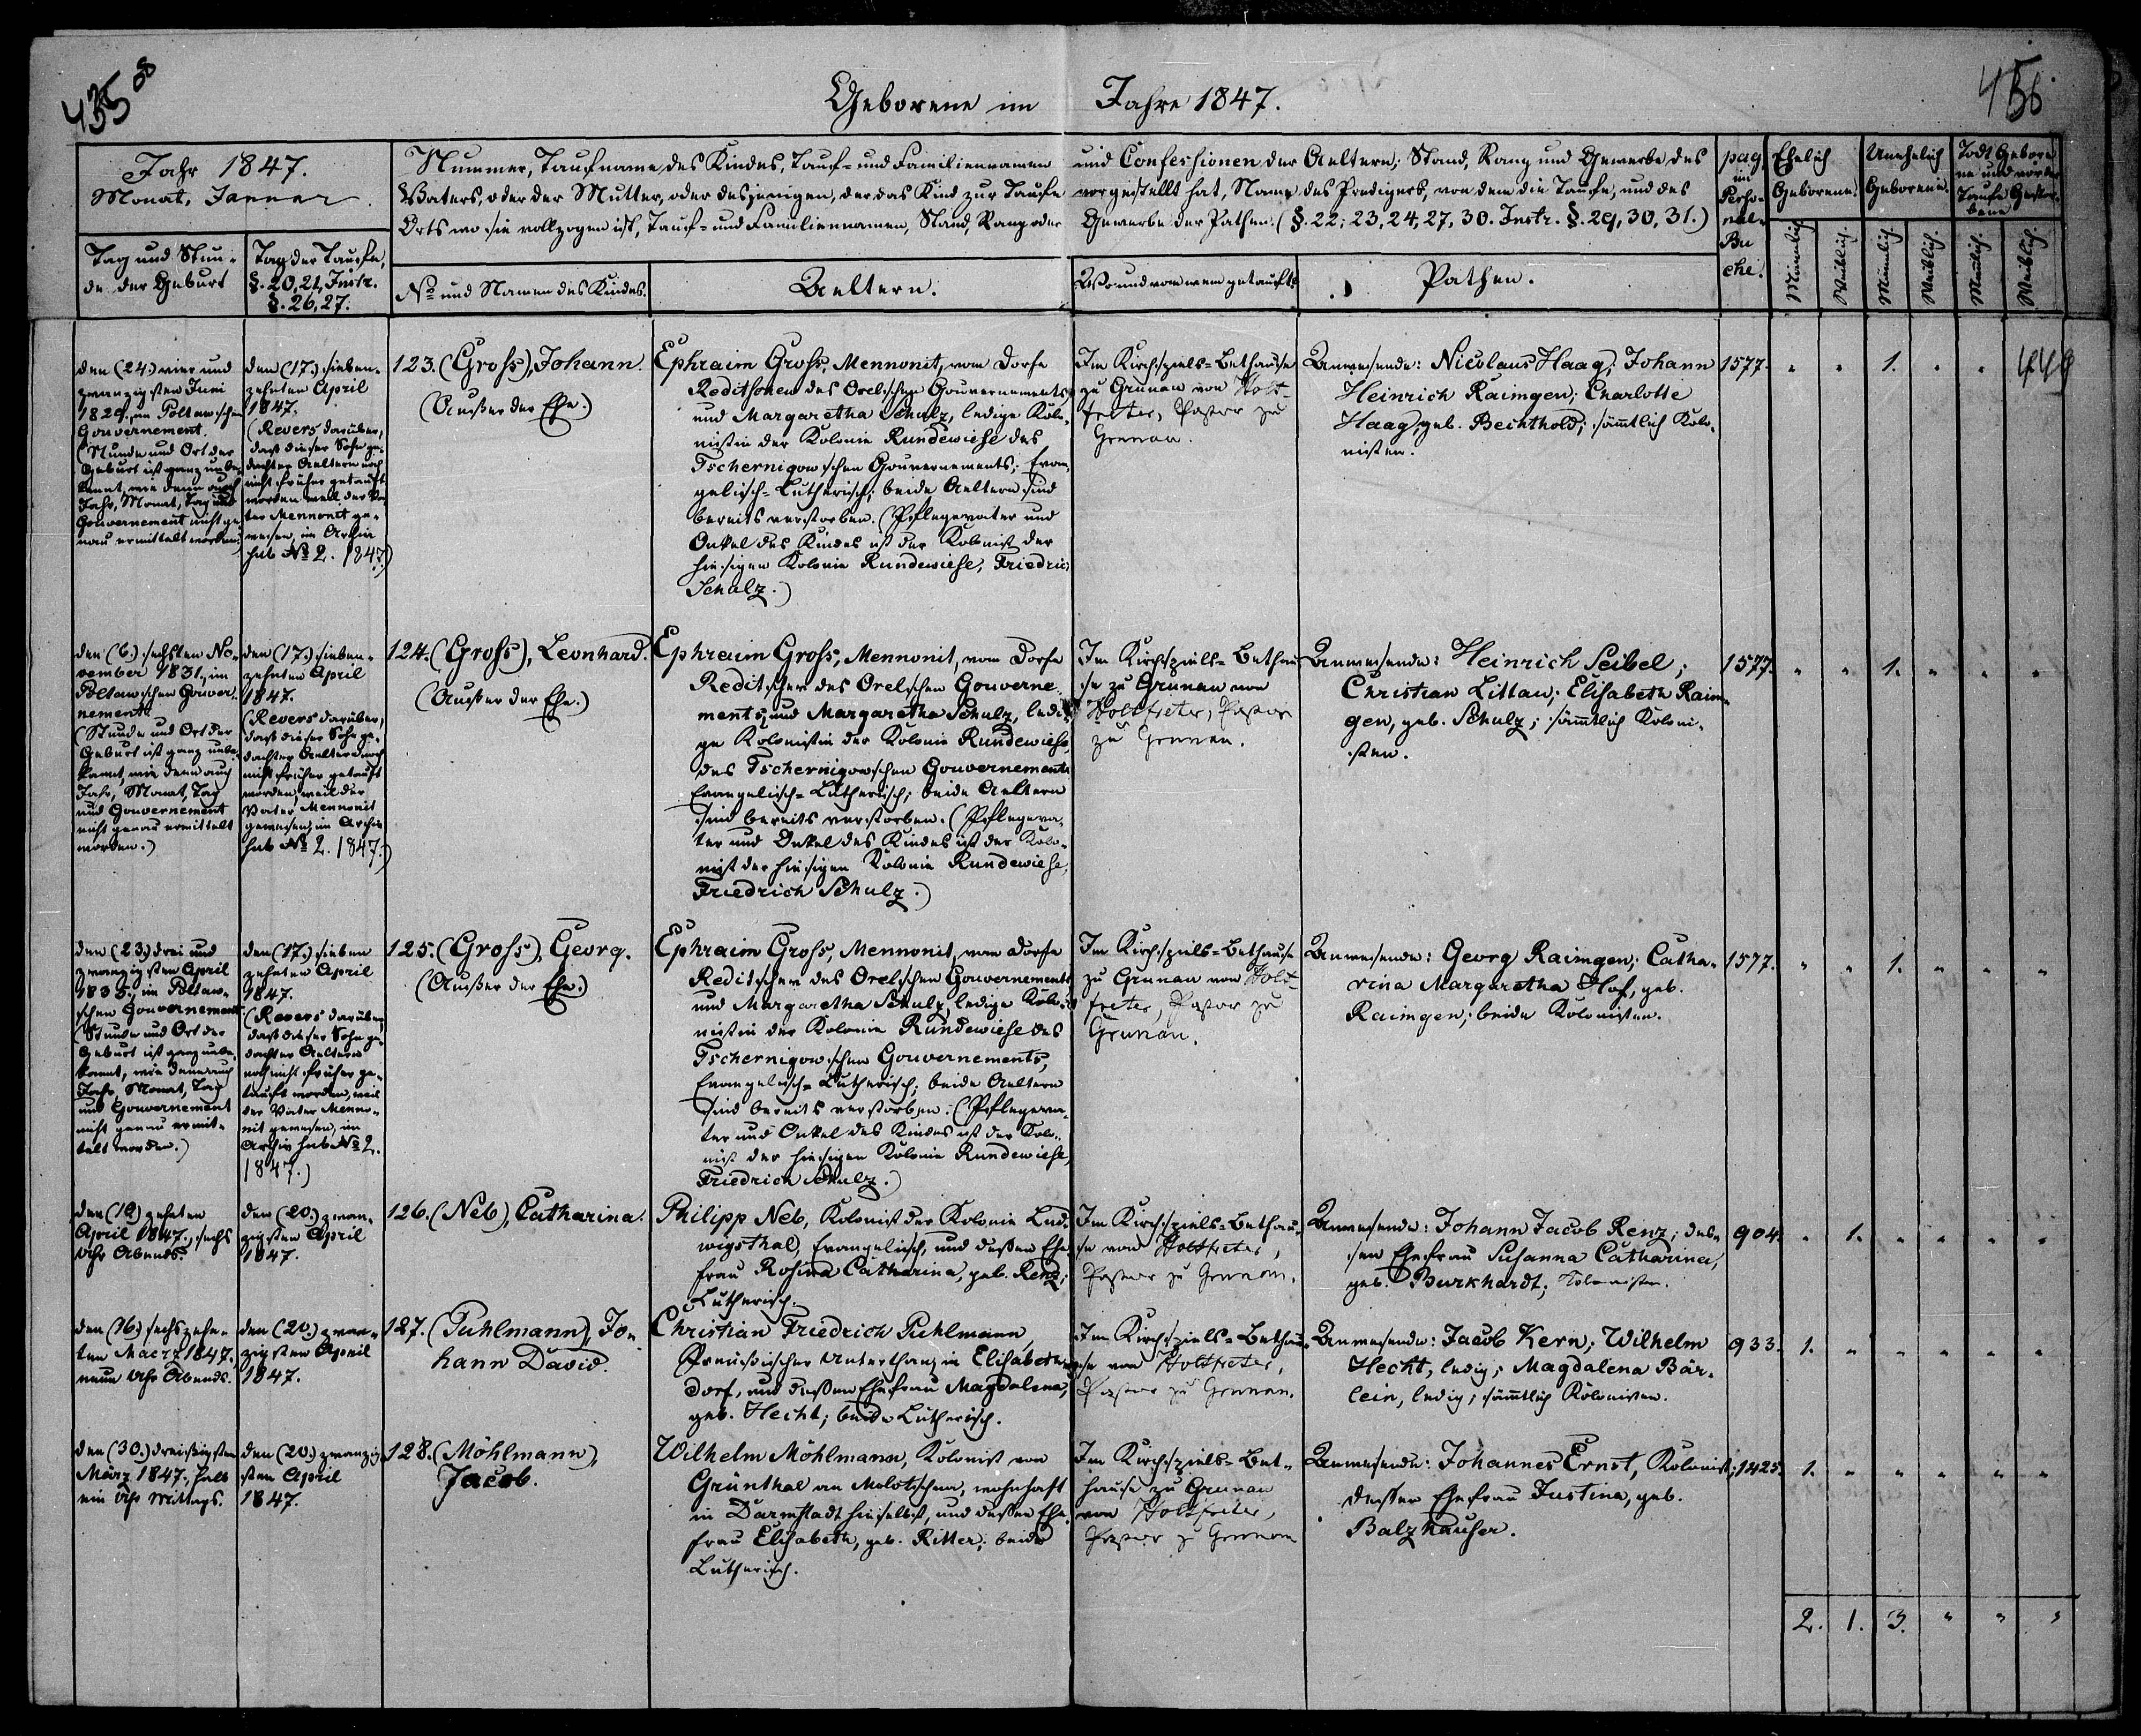 435
Geborene im Jahre 1847.
Jahr 1847.
Monat, Januar.
Tag und Stun-
de der Geburt
Tag der Taufe,
§. 20, 21, Instr.
§. 26, 27.
Nummer, Taufname des Kindes, Tauf- und Familiennamen und Confessionen der Aeltern; Stand, Rang und Gewerbe des
Vaters, oder der Mutter, oder desjenigen, der das Kind zur Taufe vorgestellt hat, Name des Predigers, von dem die Taufe, und des
Orts wo sie vollzogen ist, Tauf- und Familiennamen, Stand, Rang oder Gewerbe der Pathen. (§. 22, 23, 24, 27, 30. Instr. §. 29, 30, 31.)
No und Namen des Kindes.
Aeltern.
Wo und von wem getauft?
Pathen.
pag.
im
Perso-
nal-
Bu
che.
Ehelich
Geborene.
Unehelich
Geborene.
Todt Gebore
ne und vor der
Taufe Gestor-
bene
Männlich.
Weiblich.
Männlich.
Weiblich.
Männlich.
Weiblich.
den (24.) vier und
zwanzigsten Juni
1829, im Poltawschen
Gouvernement.
(Stunde und Ort der
Geburt ist ganz unbe-
kannt, wie denn auch
Jahr, Monat, Tag und
Gouvernement nicht ge-
nau ermittelt worden.)
den (17.) sieben-
zehnten April
1847.
(Revers darüber,
daß dieser Sohn ge-
dachter Aeltern noch
nicht früher getauft
worden weil der Va-
ter Mennonit ge-
wesen, im Archiv
sub No 2. 1847.)
123. (Gross), Johann.
(Außer der Ehe.)
Ephraim Gross, Mennonit, vom Dorfe
Reditschen des Orelschen Gouvernements,
und Margaretha Schulz, ledige Kolo-
nistin der Kolonie Rundewiese des
Tschernigowschen Gouvernements; Evan-
gelisch-Lutherisch; beide Aeltern sind
bereits verstorben. (Pflegevater und
Onkel des Kindes ist der Kolonist der
hiesigen Kolonie Rundewiese, Friedrich
Schulz.)
Im Kirchspiels-Bethause
zu Grunau von Holt-
freter, Pastor zu
Grunau.
Anwesende: Nicolaus Haag; Johann
Heinrich Raimgen; Charlotte
Haag, geb. Bechthold; sämtlich Kolo-
nisten.
1577. " " 1. " "
den (6.) sechsten No-
vember 1831, im
Poltawschen Gouver-
nement.
(Stunde und Ort der
Geburt ist ganz unbe-
kannt, wie denn auch
Jahr, Monat, Tag
und Gouvernement
nicht genau ermittelt
worden.)
den (17.) sieben-
zehnten April
1847.
(Revers darüber,
daß dieser Sohn ge-
dachter Aeltern noch
nicht früher getauft
worden, weil der
Vater Mennonit
gewesen, im Archiv
sub No 2. 1847.)
124. (Gross), Leonhard.
(Außer der Ehe.)
Ephraim Gross, Mennonit, vom Dorfe
Reditschen des Orelschen Gouverne-
ments, und Margaretha Schulz, ledi-
ge Kolonistin der Kolonie Rundewiese,
des Tschernigowschen Gouvernements
Evangelisch-Lutherisch; beide Aeltern
sind bereits verstorben. (Pflegeva-
ter und Onkel des Kindes ist der Kolo-
nist der hiesigen Kolonie Rundewiese,
Friedrich Schulz.)
Im Kirchspiels-Bethau
se zu Grunau von
Holtfreter, Pastor
zu Grunau.
Anwesende: Heinrich Seibel;
Christian Littau; Elisabeth Raim-
gen, geb. Schulz; sämtlich Koloni-
sten.
1577. " " 1. " " "
den (23.) drei und
zwanzigsten April
1835, im Poltaw-
schen Gouvernement
(Stunde und Ort der
Geburt ist ganz unbe-
kannt, wie denn auch
Jahr, Monat, Tag
und Gouvernement
nicht genau ermit-
telt worden.)
den (17.) sieben
zehnten April
1847.
(Revers darüber,
daß dieser Sohn ge-
dachter Aeltern
noch nicht früher ge-
tauft worden, weil
der Vater Menno-
nit gewesen, im
Archiv sub No 2.
1847.)
125. (Gross), Georg.
(Außer der Ehe.)
Ephraim Gross, Mennonit, vom Dorfe
Reditschen des Orelschen Gouvernements
und Margaretha Schulz, ledige Kolo-
nistin der Kolonie Rundewiese des
Tschernigowschen Gouvernements,
Evangelisch-Lutherisch; beide Aeltern
sind bereits verstorben. (Pflegeva-
ter und Onkel des Kindes ist der Kolo-
nist der hiesigen Kolonie Rundewiese,
Friedrich Schulz.)
Im Kirchspiels-Bethause
zu Grunau von Holt-
freter, Pastor zu
Grunau.
Anwesende: Georg Raimgen; Catha-
rina Margaretha Hof, geb.
Raimgen; beide Kolonisten.
1577. " " 1. " " "
den (10.) zehnten
April 1847, sechs
Uhr Abends.
den (20.) zwan-
zigsten April
1847.
126. (Neb), Catharina.
Philipp Neb, Kolonist der Kolonie Lud-
wigsthal, Evangelisch, und dessen Ehe
frau Rosina Catharina, geb. Renz;
Lutherisch.
Im Kirchspiels-Bethau-
se von Holtfreter,
Pastor zu Grunau.
Anwesende: Johann Jacob Renz; des-
sen Ehefrau Susanna Catharina,
geb. Burkhardt; Kolonisten.
904. " 1. " " " "
den (16.) sechszehn-
ten Maerz 1847.,
neun Uhr Abends.
den (20.) zwan-
zigsten April
1847.
127. (Puhlmann), Jo-
hann David.
Christian Friedrich Puhlmann,
Preußischer Unterthan, in Elisabeth-
dorf, und dessen Ehefrau Magdalena,
geb. Hecht; beide Lutherisch.
Im Kirchspiels-Bethau-
se von Holtfreter,
Pastor zu Grunau.
Anwesende: Jacob Kern; Wilhelm
Hecht, ledig; Magdalena Bär-
lein, ledig; sämtlich Kolonisten.
933. 1. " " " " "
den (30.) dreißigsten
März 1847. halb
ein Uhr Mittags.
den (20.) zwanzig
sten April
1847.
128. (Möhlmann),
Jacob.
Wilhelm Möhlmann, Kolonist von
Grünthal an Molotschna, wohnhaft
in Darmstadt hieselbst, und dessen Ehe-
frau Elisabeth, geb. Ritter; beide
Lutherisch.
Im Kirchspiels-Bet-
hause zu Grunau
von Holtfreter,
Pastor zu Grunau
Anwesende: Johannes Ernst, Kolonist;
dessen Ehefrau Justina, geb.
Balzhauser.
1425. 1. " " " " "
2. 1. 3. " " "